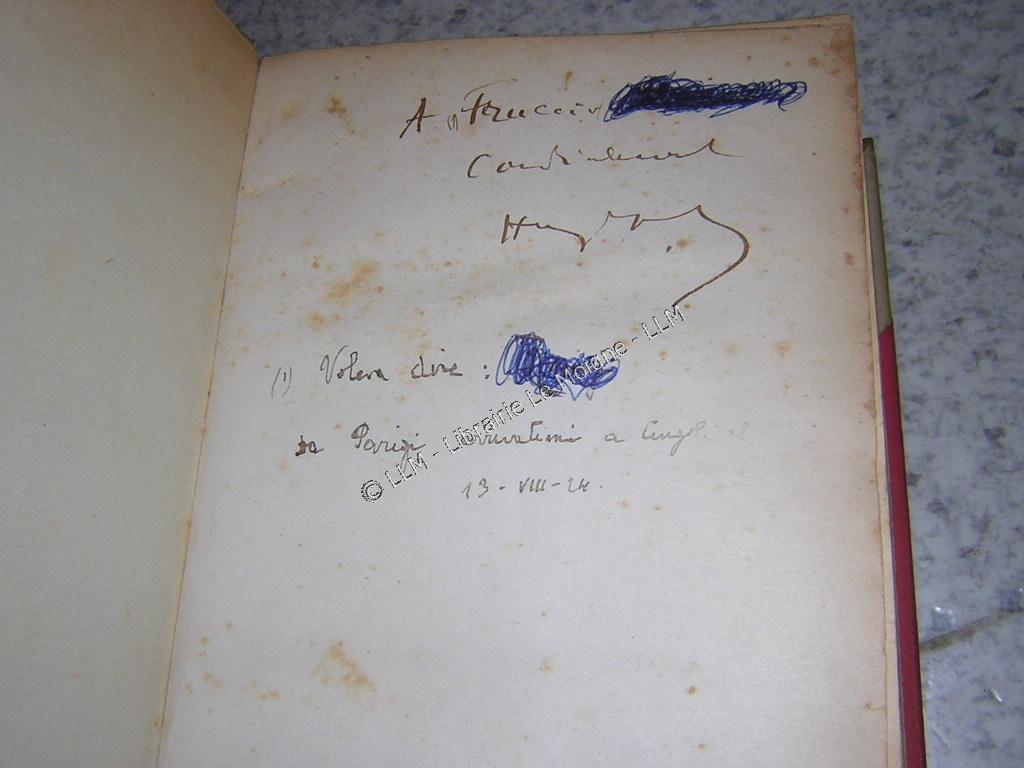 A (1) Fruccio
Cordialement
(1) Voleva dire :
da Parigi arrivatimi a
13 - VIII - 24.
© LLM - Librairie Le Moigne - LLM